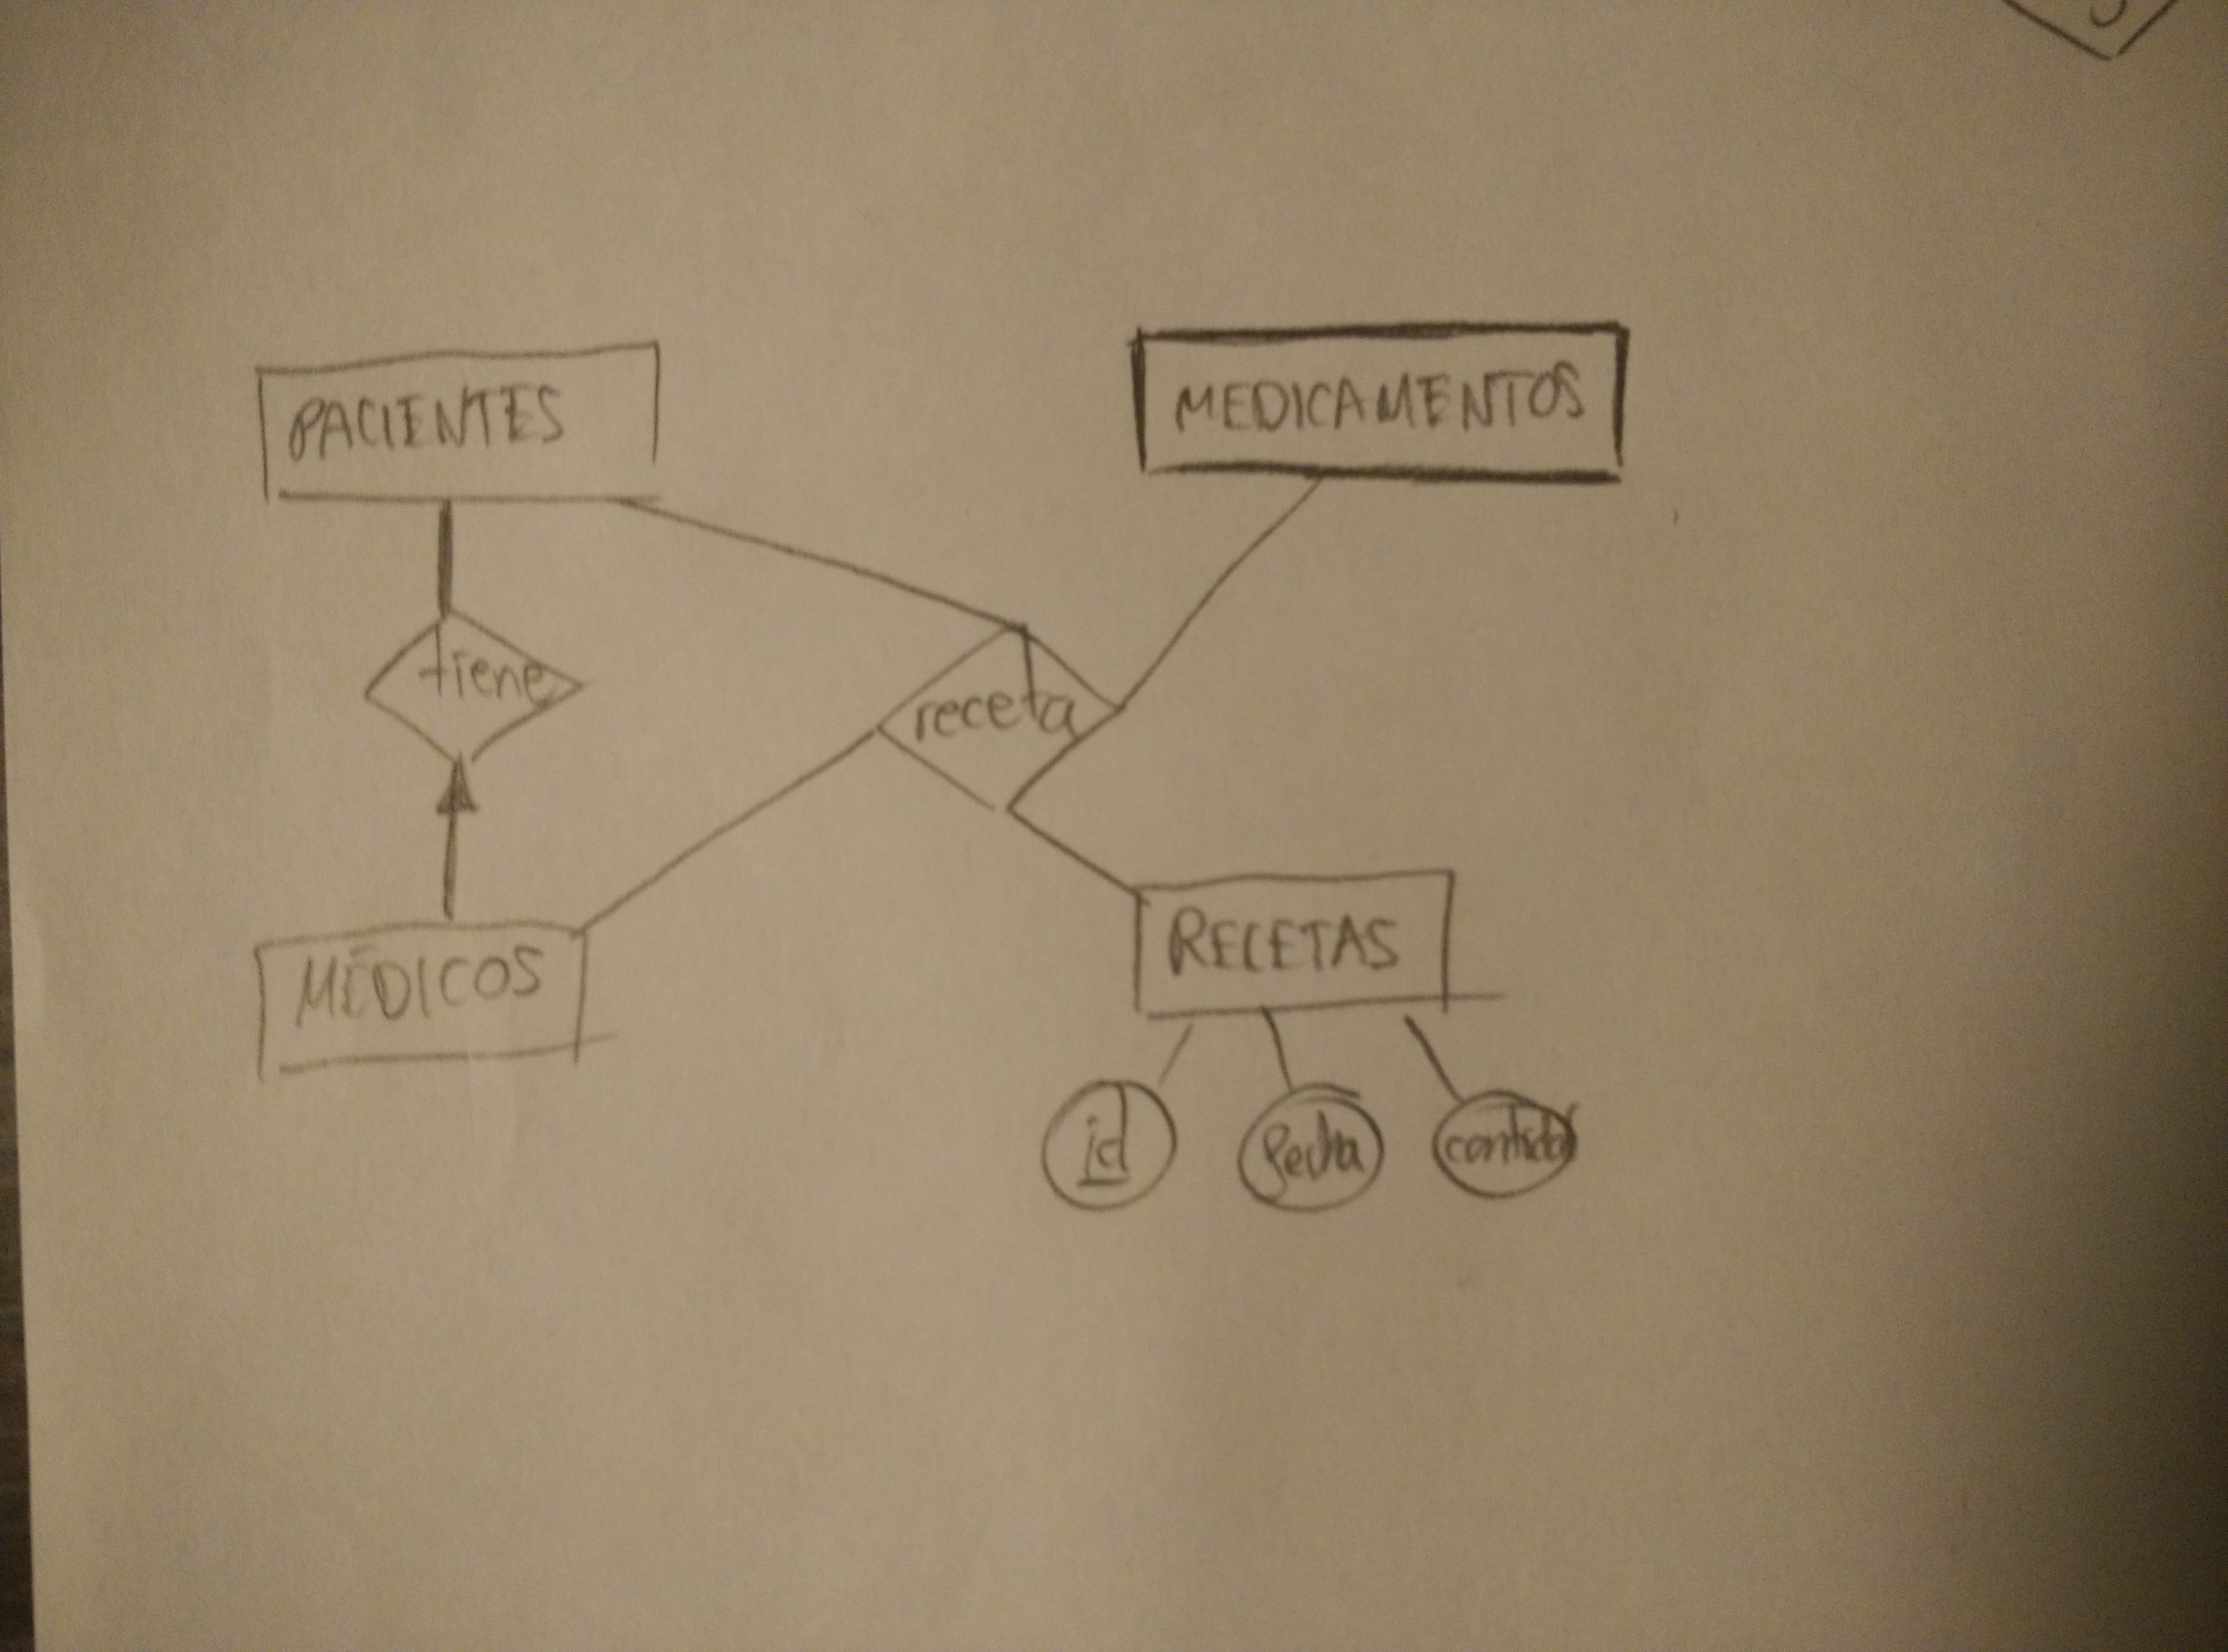 PACIENTES
MEDICAMENTOS
tiene
receta
MÉDICOS
RECETAS
id
fecha
cantidad